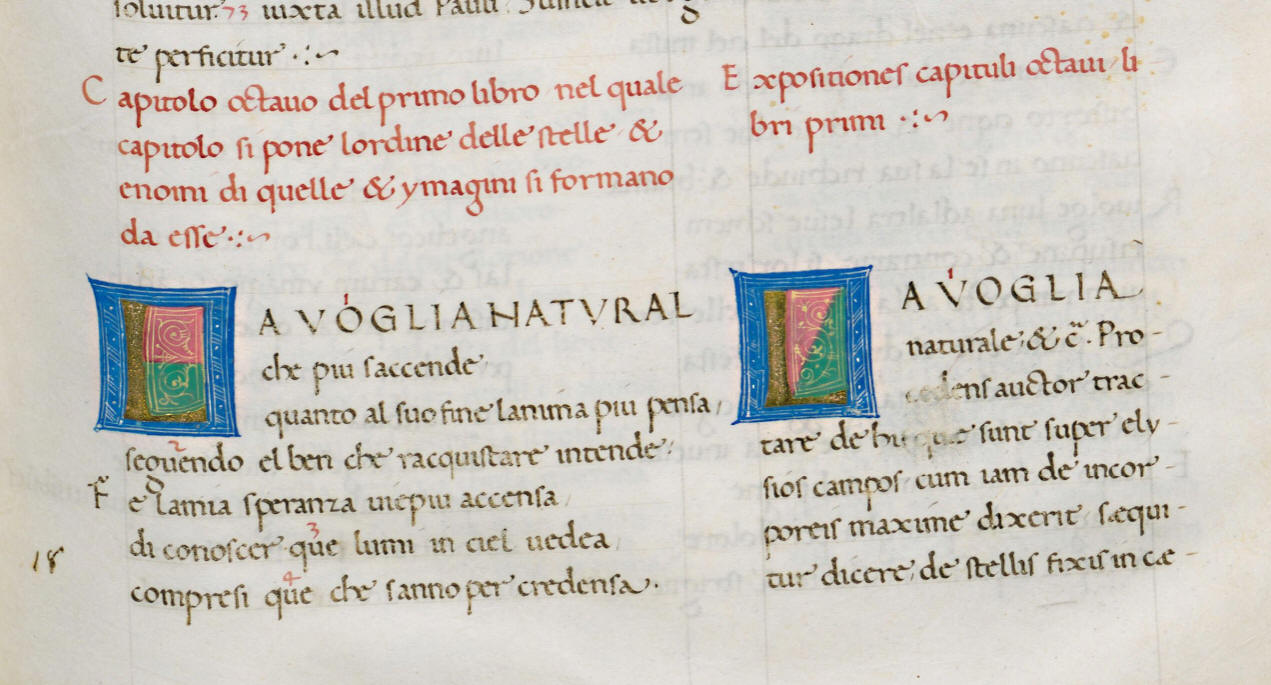 soluitur. 73 iuxta illud Pauli.
te perficitur
Capitolo octauo del primo libro nel quale
capitolo si pone lordine delle stelle &
enomi di quelle & ymagini si formano
da esse
LA VOGLIA NATVRAL
che piu saccende
quanto al suo fine lanima piu pensa
seguendo el ben che racquistare intende
F e lamia speranza uiepiu accensa
di conoscer que lumi in ciel uedea
18
compresi que che sanno per credensa.
Expositiones capituli octaui li
bri primi
LA VOGLIA
naturale & c̃. Pro-
cedens auctor trac-
tare de que sunt super ely-
sios campos cum iam de incor-
poreis maxime dixerit sæqui-
tur dicere de stellis fixis in cæ-